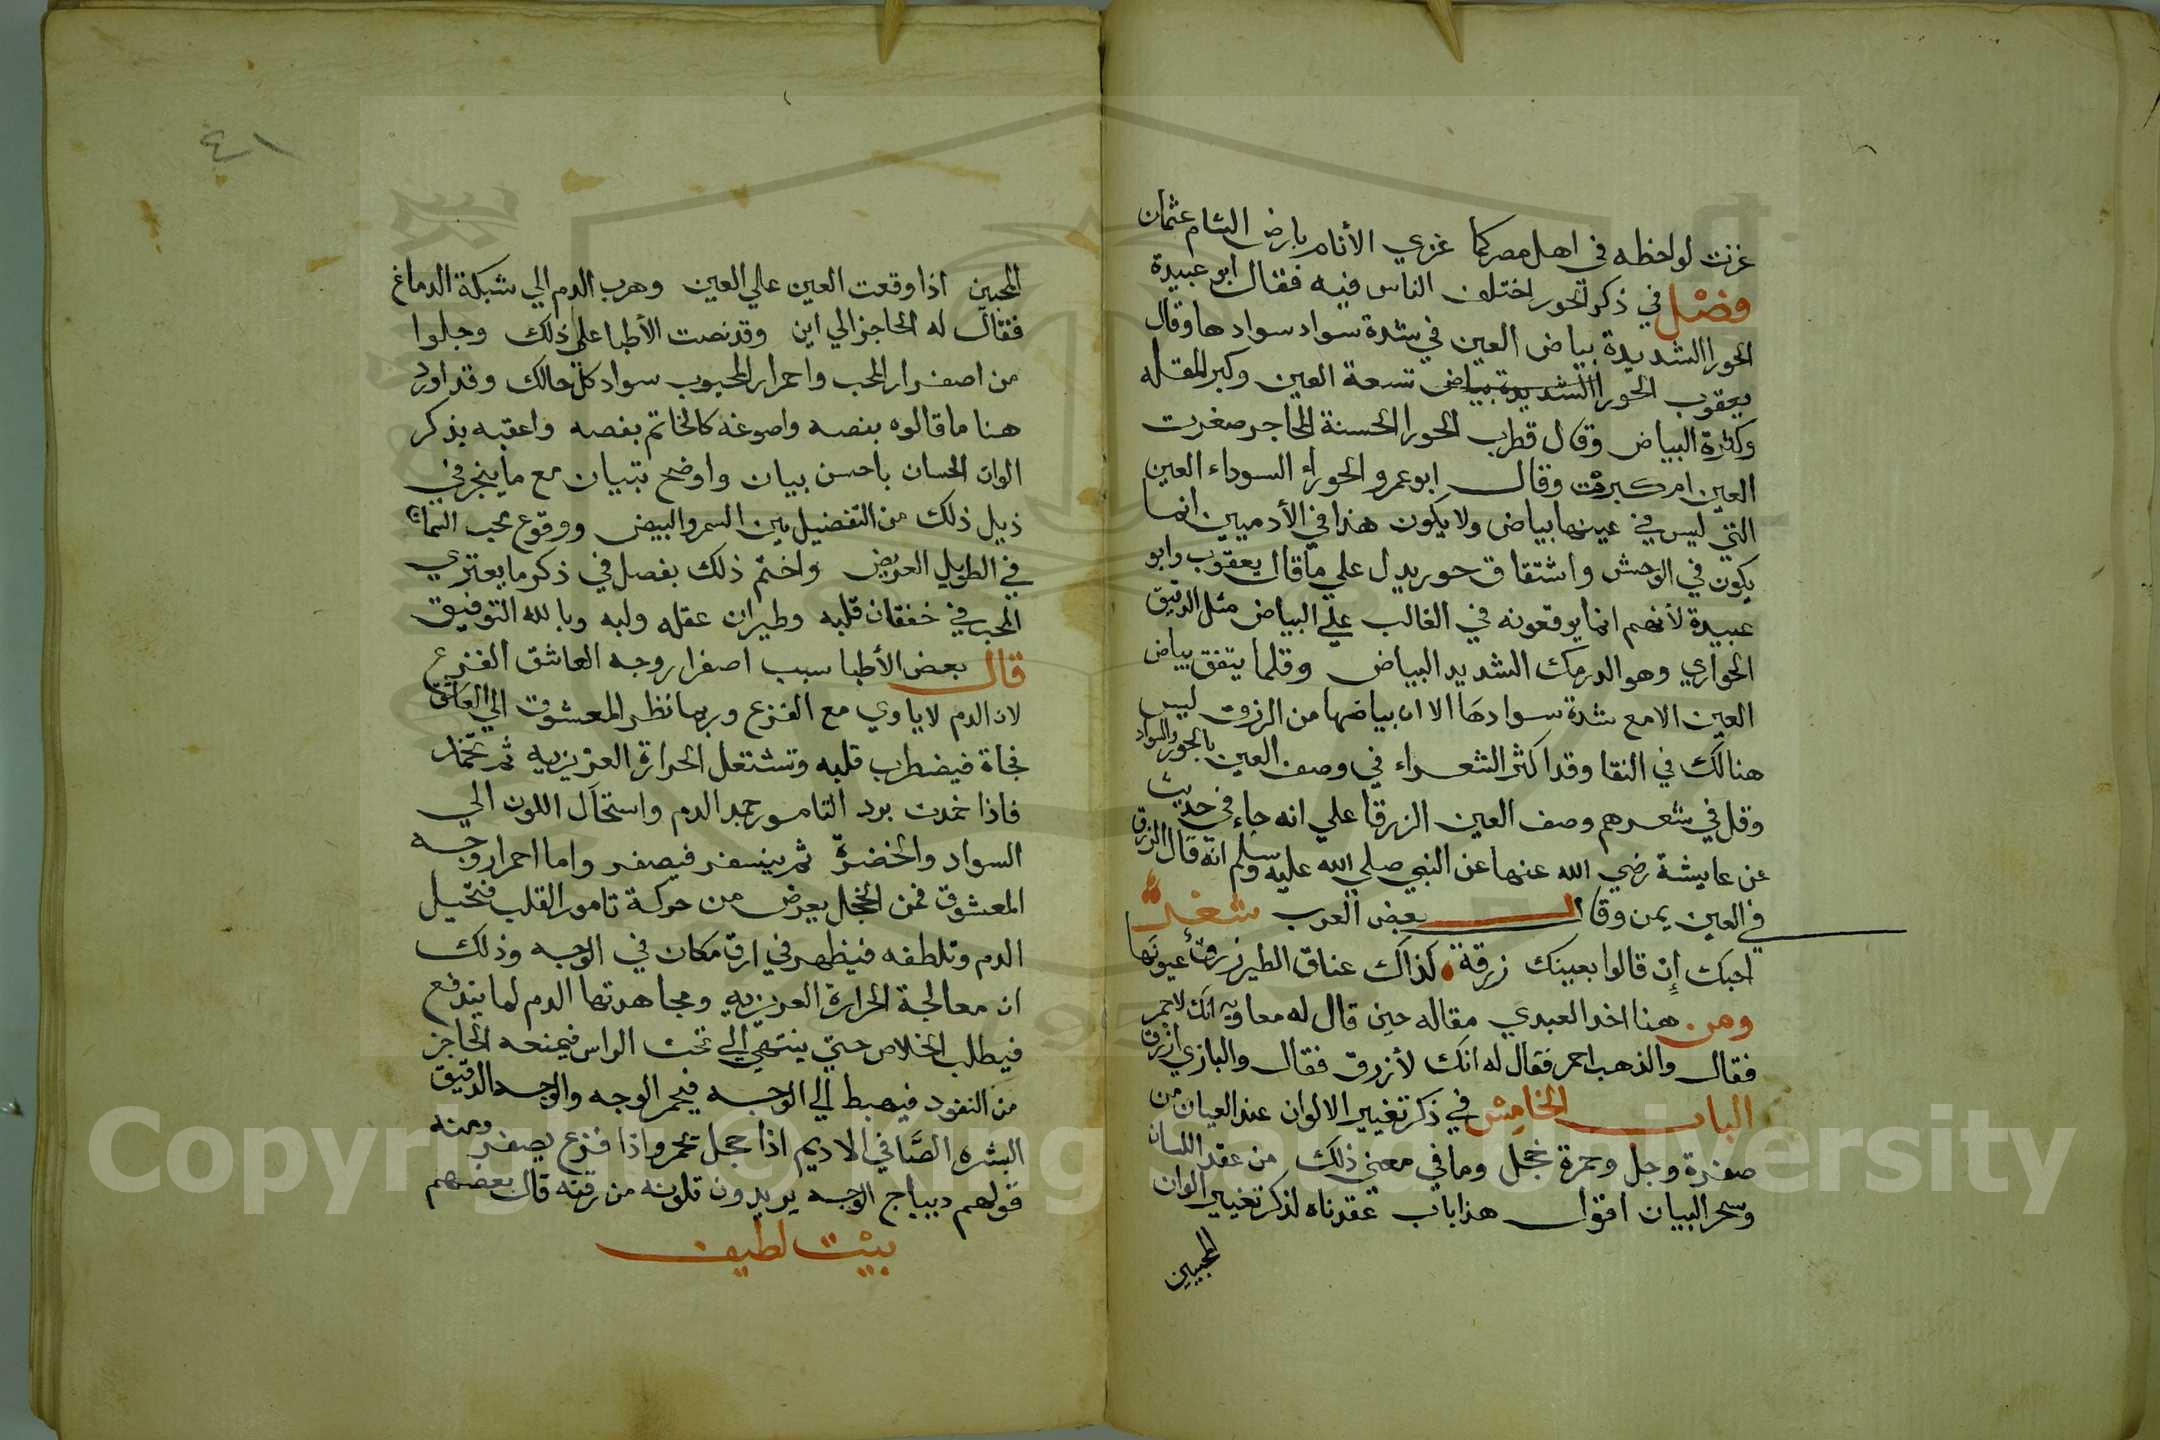 غزت لواحظه في اهل مصر كما غزي الأنام بارض الشام عثمان
فصل في ذكر الحور اختلف الناس فيه فقال ابو عبيدة
الحورا الشديدة بياض العين في شدة سواد سوادها وقال
يعقوب الحورا الشديدة بياض سعة العين وكبر المقله
وكثرة البياض وقال قطرب الحورا الحسنة المحاجر صغرت
العين ام كبرت وقال ابو عمرو الحوراء السوداء العين
التي ليس في عينها بياض ولا يكون هذا في الأدميين انما
يكون في الوحش واشتقاق حور يدل علي ما قال يعقوب وابو
عبيدة لأنهم انما يوقعونه في الغالب علي البياض مثل الدقيق
الحواري وهو الدرمك الشديد البياض وقلما يتفق بياض
العين الا مع شدة سوادها الا ان بياضها من الزرق ليس
هنالك في النقا وقد اكثر الشعراء في وصف العين بالحور والسواد
وقل في شعرهم وصف العين الزرقا علي انه جاء في حديث
عن عايشة رضي الله عنها عن النبي صلي الله عليه وسلم انه قال الزرق
في العين يمن وقال بعض العرب شعر
احبك إن قالوا بعينك زرقة كذاك عناق الطير زرق عيونها
ومن هنا اخد العبدي مقاله حين قال له معاويه انك لاحمر
فقال والذهب احمر فقال له انك لأزرق فقال والبازي ازرق
الباب الخامس في ذكر تغيير الالوان عند العيان من
صفرة وجل وحمرة خجل وما في معني ذلك من عقد اللسان
وسحر البيان اقول هذا باب عقدناه لذكر تغيير الوان
المحبين
٤١
المحبين اذا وقعت العين علي العين وهرب الدم الي شبكة الدماغ
فقال له الحاجز الي اين وقد نصت الأطبا علي ذلك وجلوا
من اصفرار المحب واحمرار المحبوب سواد كل حالك وقد اورد
هنا ما قالوه بنصه واصوغه كالخاتم بفصه واعقبه بذكر
الوان الحسان باحسن بيان واوضح تبيان مع ما ينجر في
ذيل ذلك من التفضيل بين السمر والبيض ووقوع محب السمان
في الطويل العريض واختم ذلك بفصل في ذكر ما يعتري
المحب في خفقان قلبه وطيران عقله ولبه وبالله التوفيق
قال بعض الأطبا سبب اصفرار وجه العاشق الفزع
لان الدم لا ياوي مع الفزع وربما نظر المعشوق الي العاشق
فجاة فيضطرب قلبه وتشتعل الحرارة العزيزيه ثم تخمد
فاذا خمدت برد التامور جمد الدم واستحال اللون الي
السواد والخضرة ثم يسفر فيصفر واما احمرار وجه
المعشوق فمن الخجل يعرض من حركة تامور القلب فتحيل
الدم وتلطفه فيظهر في ارق مكان في الوجه وذلك
ان معالجة الحرارة العزيزيه ومجاهدتها الدم لما يندفع
فيطلب الخلاص حتي ينتهي الي تحت الراس فيمنعه الحاجز
من النفود فيهبط الي الوجه فيحمر الوجه والوجه الدقيق
البشره الصافي الاديم اذا خجل يحمر واذا فزع يصفر ومنه
قولهم ديباج الوجه يريدون تلونه من رقته قال بعضهم
بيت لطيف
Copyright © King Saud University